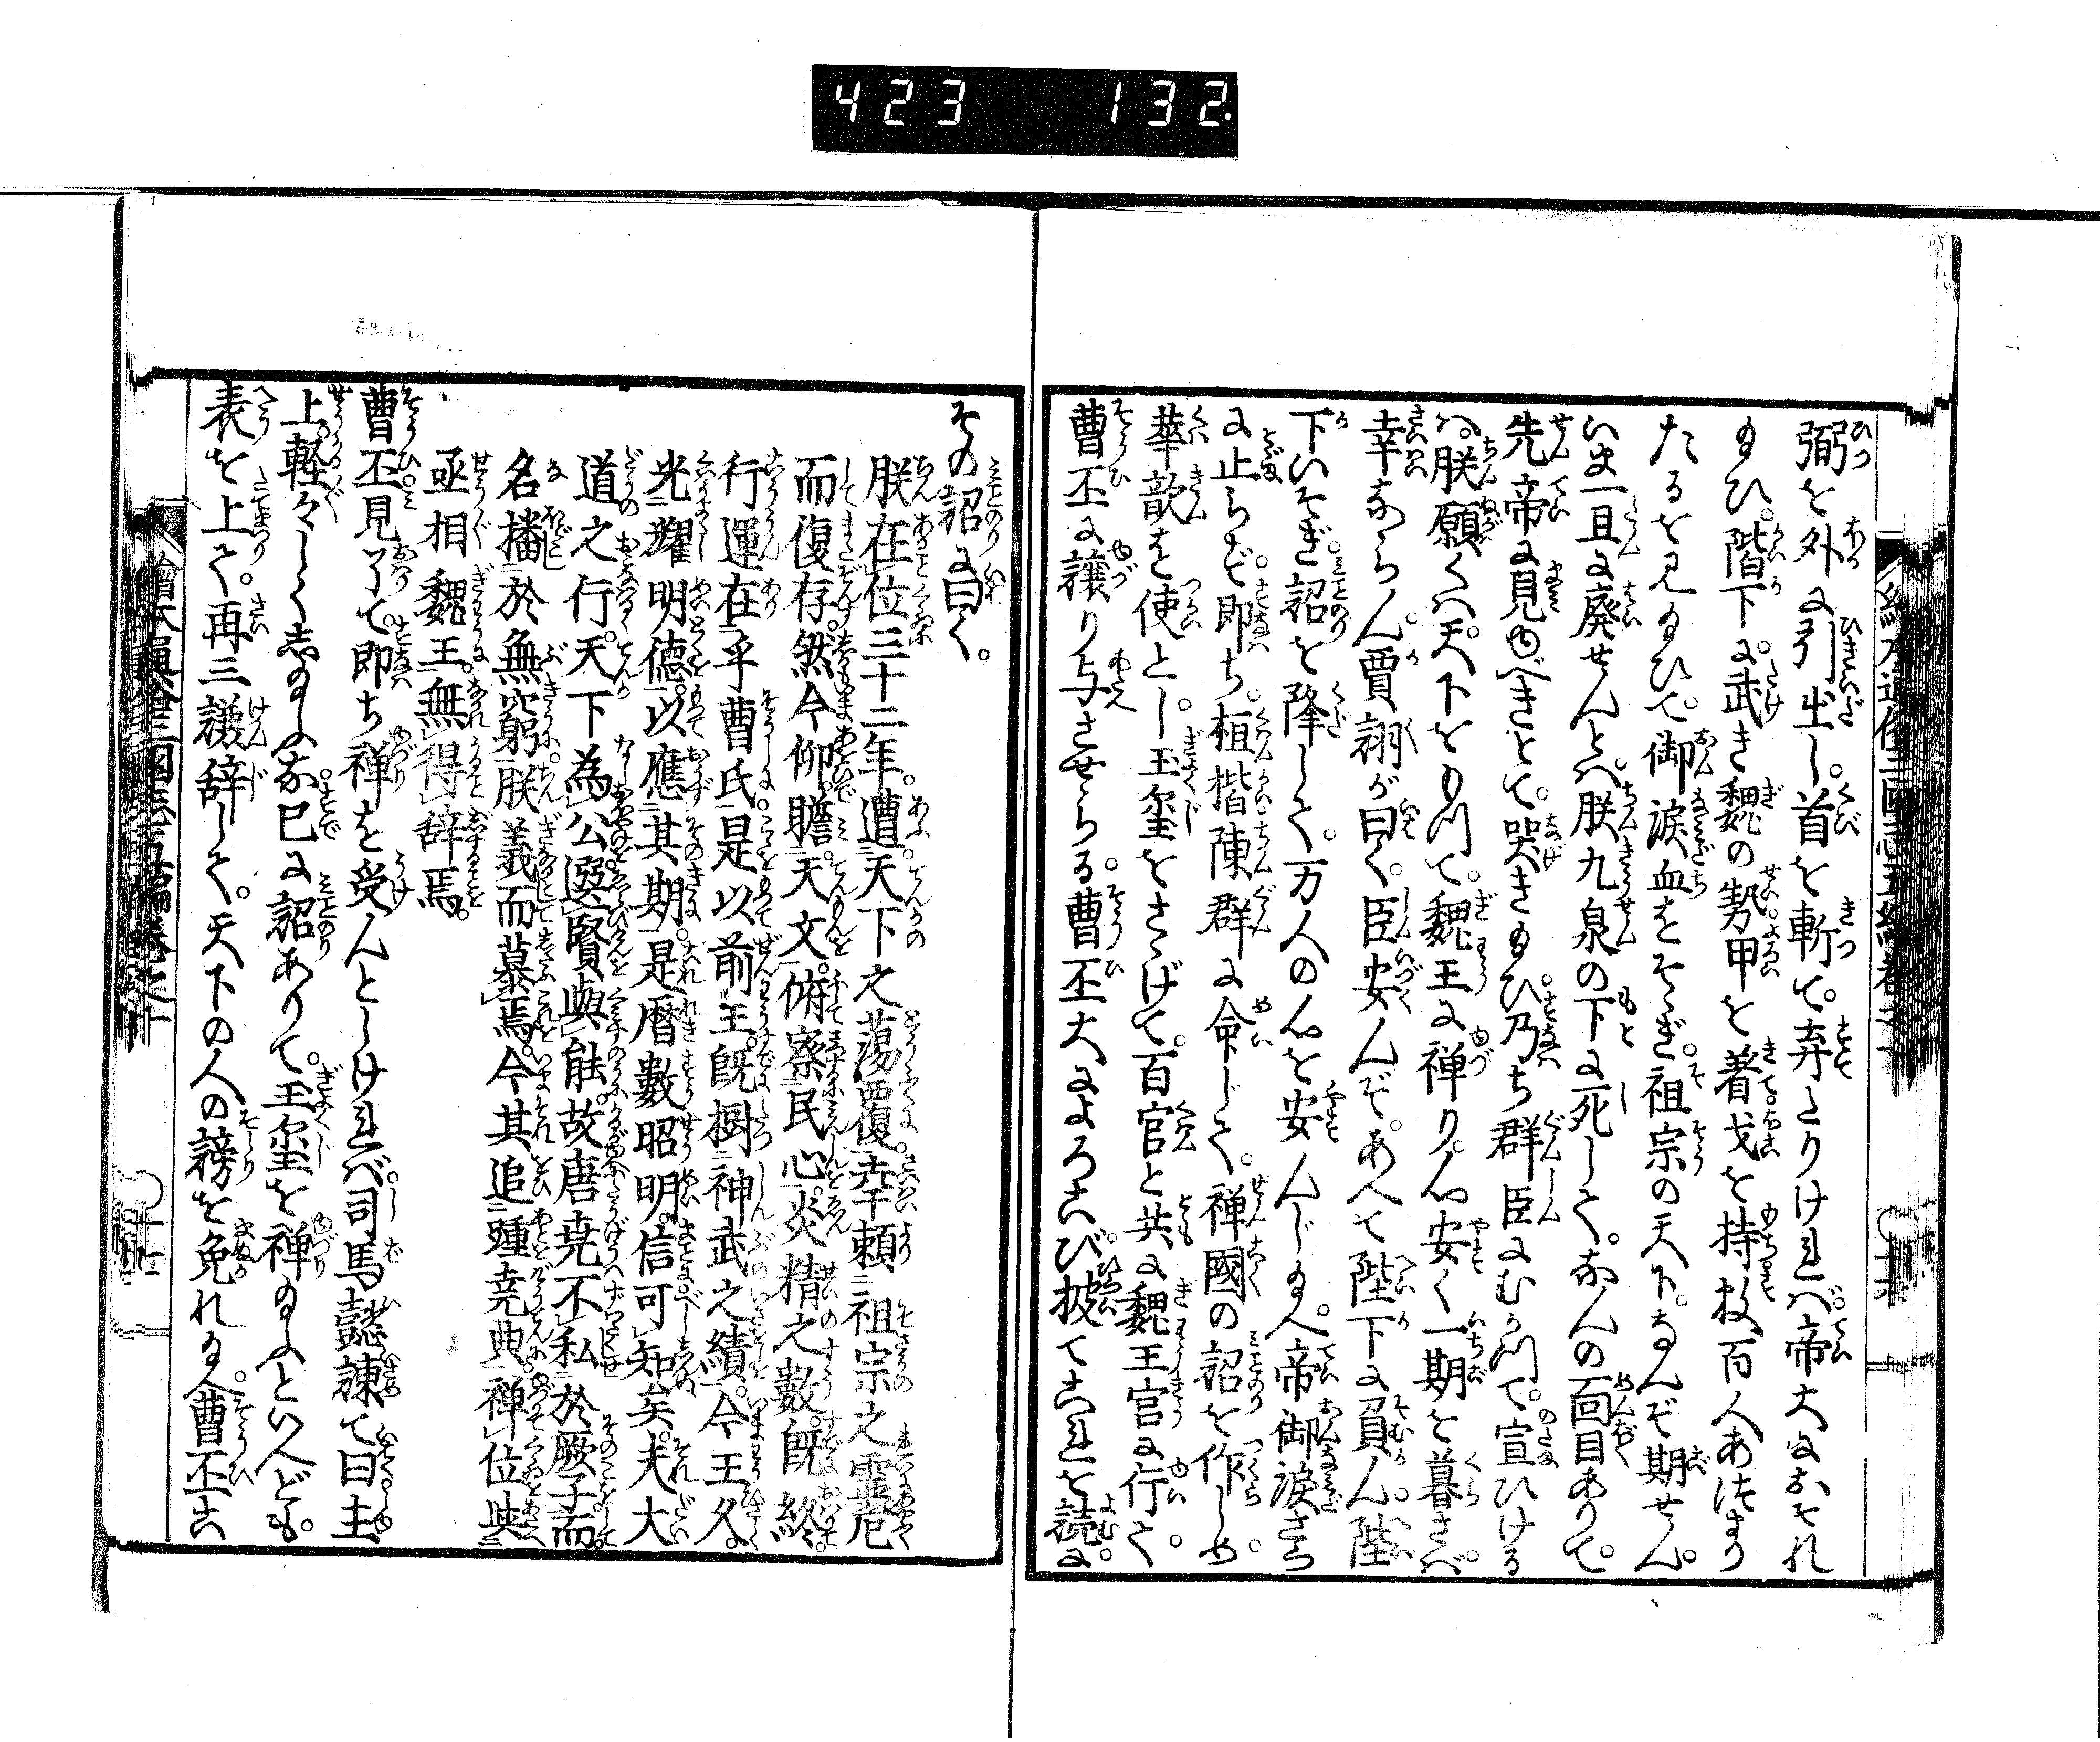 423 132.
弼を外に引出し。首を斬て。弃たりければ。帝大におそれ
給ひ。階下に。武き魏の勢甲を着戈を持。数百人あつまり
たるを見給ひて。御涙血をそゝぎ。祖宗の天下。なんぞ期せん。
いま一旦に廃せんとは。朕九泉の下に死して。なんの面目ありて。
先帝に見ゆべきとて。哭き給ひ。乃ち群臣にむかつて。宣ひける
は。朕願くは。天下をもつて。魏王に禅り。心安く一期を暮さば
幸ならん。賈詡が曰く。臣安んぞ。あへて陛下に負ん。陛
下いそぎ。詔を降して。万人の心を安んじ給へ。帝御涙さら
に止らず。即ち。桓楷陳群に命じて。禅國の詔を作しめ。
華歆を使とし。玉璽をさゝげて。百官と共に魏王宮に行て。
曹丕に譲り与させらる。曹丕大によろこび。披てこれを読に。
その詔に曰く。
朕在位三十二年。遭天下之蕩覆。幸頼祖宗之霊。危
而復存。然今仰瞻天文。俯察民心。炎精之數。既終。
行運在乎曹氏。是以前王。既樹神武之績。今王久。
光耀明徳。以應其期。是暦數昭明。信可知矣。夫大
道之行。天下為公。選賢與能。故唐堯不私於厥子而。
名播於無窮。朕義而慕焉。今其追踵堯典。禅位與
丞相魏王。無得辞焉。
曹丕見了て。即ち禅を受んとしければ。司馬懿諫て曰主
上。軽々しくし給ふな。已に詔ありて。玉璽を禅給ふといへども。
表を上て。再三謙辞して。天下の人の謗を免れ給へ。曹丕こ